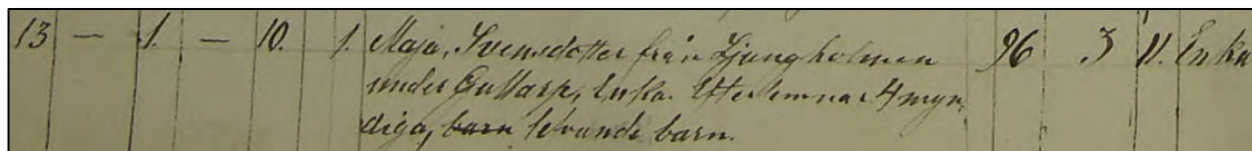 13 — 1. — 10. 1. Maja, Svensdotter från Ljungholmen 96 3 11. Enka
under Gullarp, Enka. Efterlemnar 4 myn-
diga, barn levande barn.